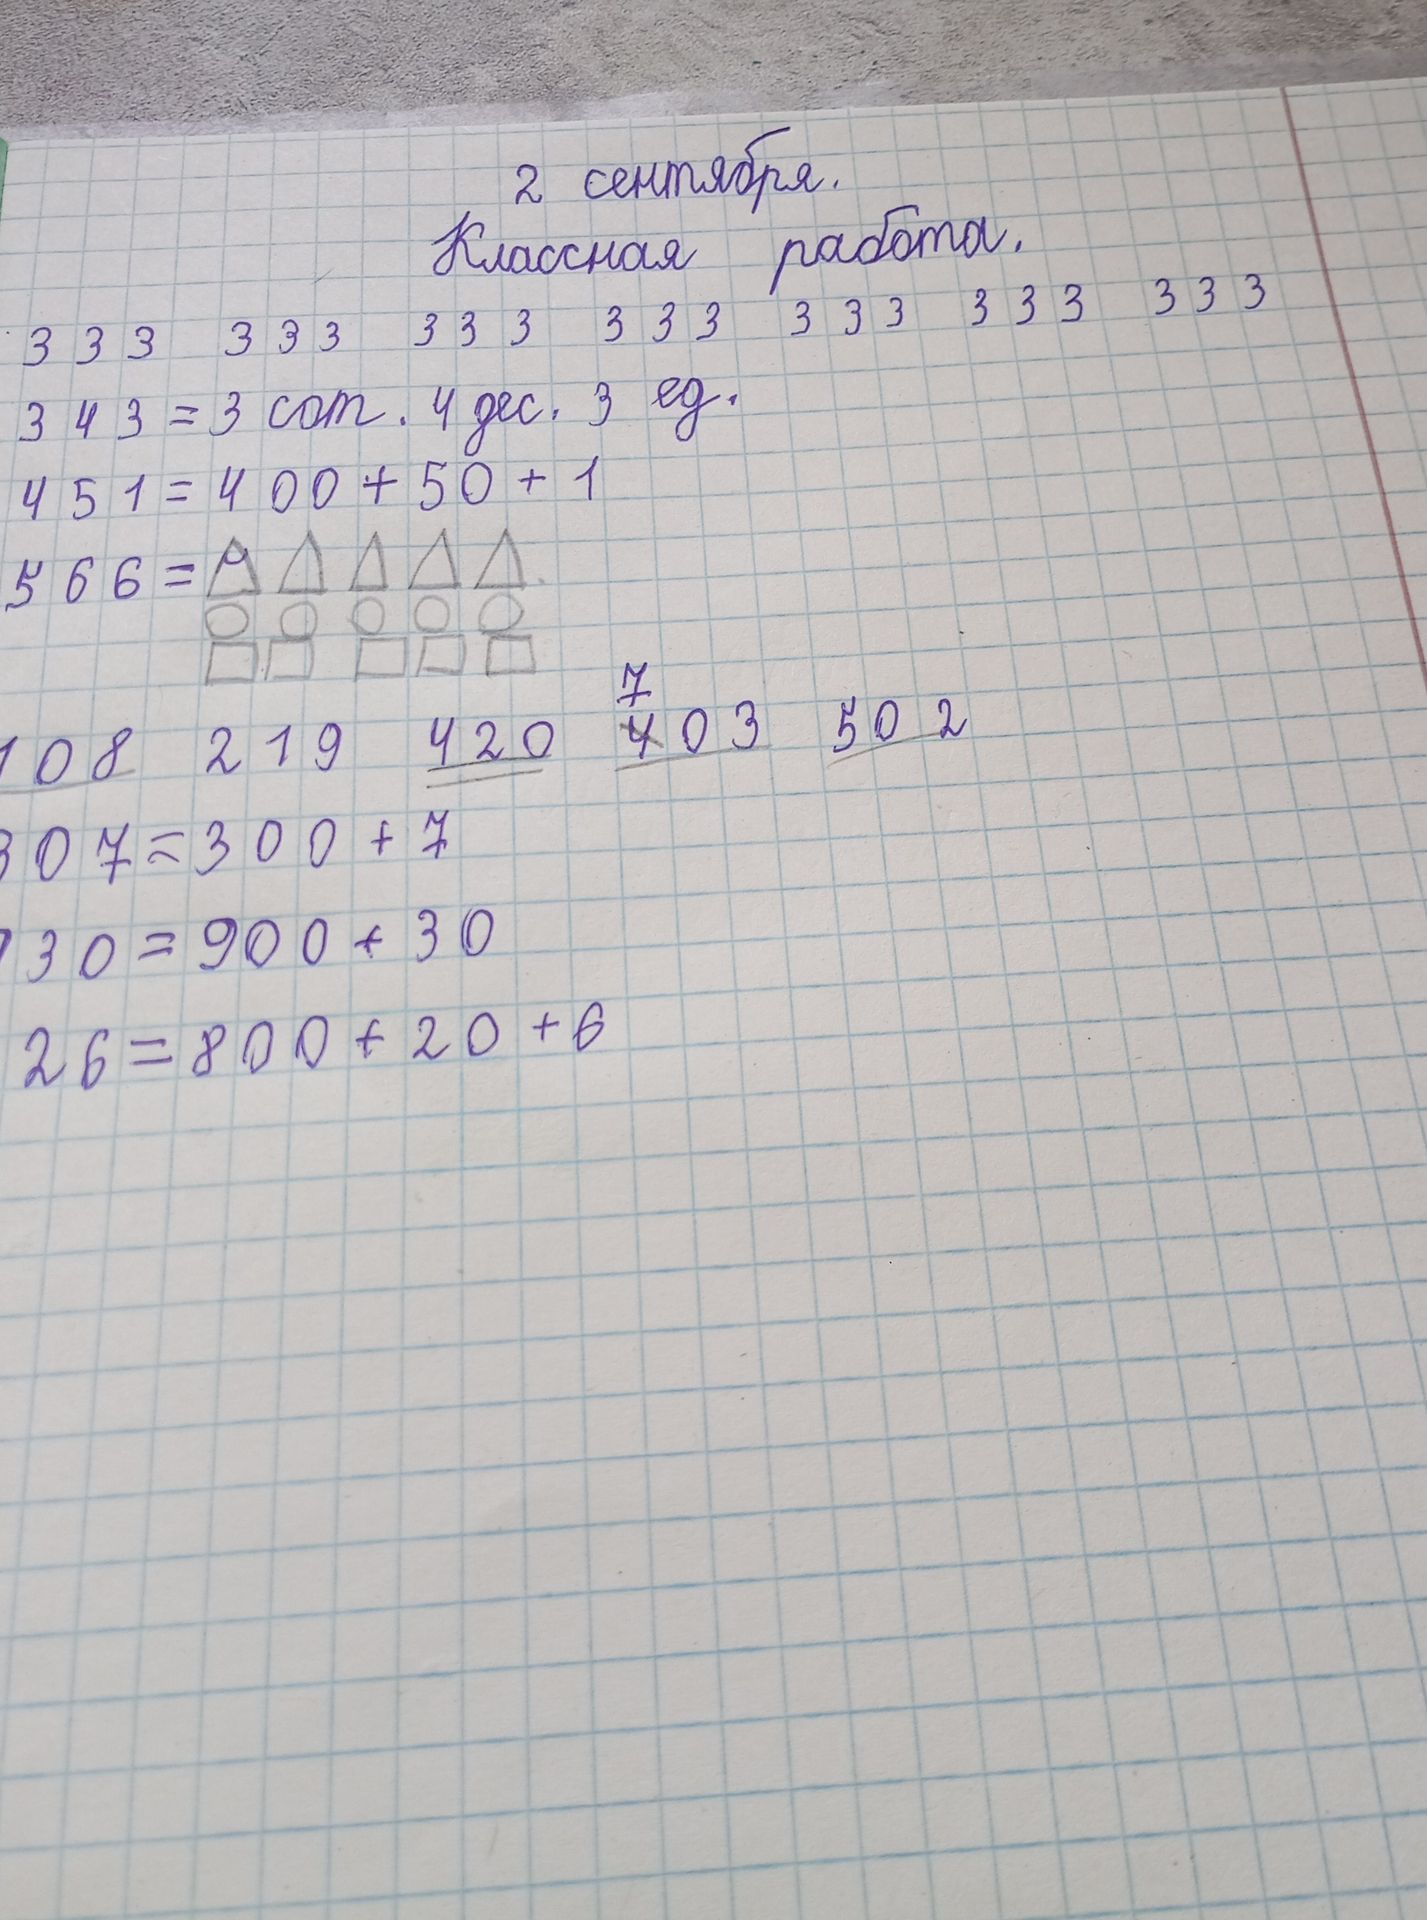 2 сентября.
Классная работа.
3 3 3 3 3 3 3 3 3 3 3 3 3 3 3 3 3 3 3 3 3
343 = 3 сот. 4 дес. 3 ед.
451 = 400 + 50 + 1
566 =
7
108 219 420 403 502
307 = 300 + 7
930 = 900 + 30
26 = 800 + 20 + 6